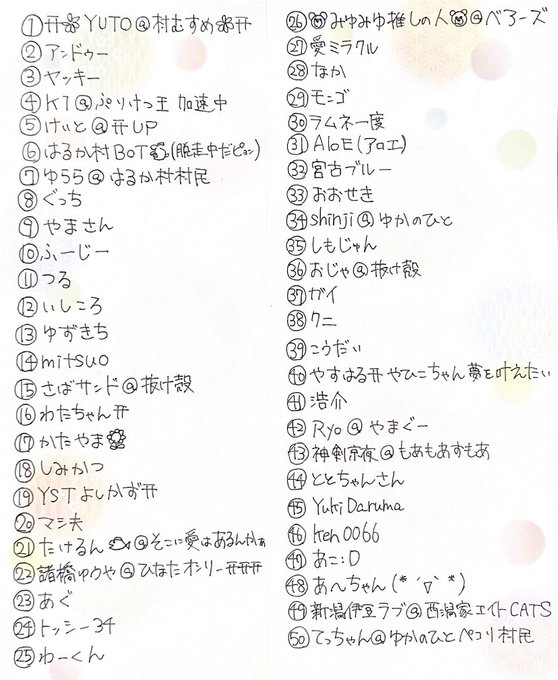 ①⛩🌸YUTO@村むすめ🌸⛩
②アンドゥー
③ヤッキー
④KT@ぷりけつ王 加速中
⑤けいと@⛩UP
⑥はるか村BOT(脱走中だピョン)
⑦ゆらら@はるか村村民
⑧ぐっち
⑨やまさん
⑩ふーじー
⑪つる
⑫いしころ
⑬ゆずきち
⑭mitsuo
⑮さばサンド@抜け殻
⑯わたちゃん⛩
⑰かたやま
⑱しみかつ
⑲YSTよしかず⛩
⑳マシ夫
㉑たけるん🐟@そこに愛はあるんかぁ
㉒諸橋ゆうや@ひなたオンリー⛩⛩⛩
㉓あぐ
㉔トッシー34
㉕わーくん
㉖🐻みゆみゆ推しの人🐻@べあーズ
㉗愛ミラクル
㉘なか
㉙モンゴ
㉚ラムネ一度
㉛AloE(アロエ)
㉜宮古ブルー
㉝おおせき
㉞shinji@ゆかのひと
㉟しもじゅん
㊱おじゃ@抜け殻
㊲ガイ
㊳クニ
㊴こうだい
㊵やすはる⛩やひこちゃん夢を叶えたい
㊶浩介
㊷Ryo@やまぐー
㊸神剣京夜@もあもあすもあ
㊹ととちゃんさん
㊺Yuki Daruma
㊻ken0066
㊼あこ:D
㊽あへちゃん(*´▽`*)
㊾新潟伊豆ラブ@西潟家エイトCATS
㊿てっちゃん@ゆかのひとペコリ村民